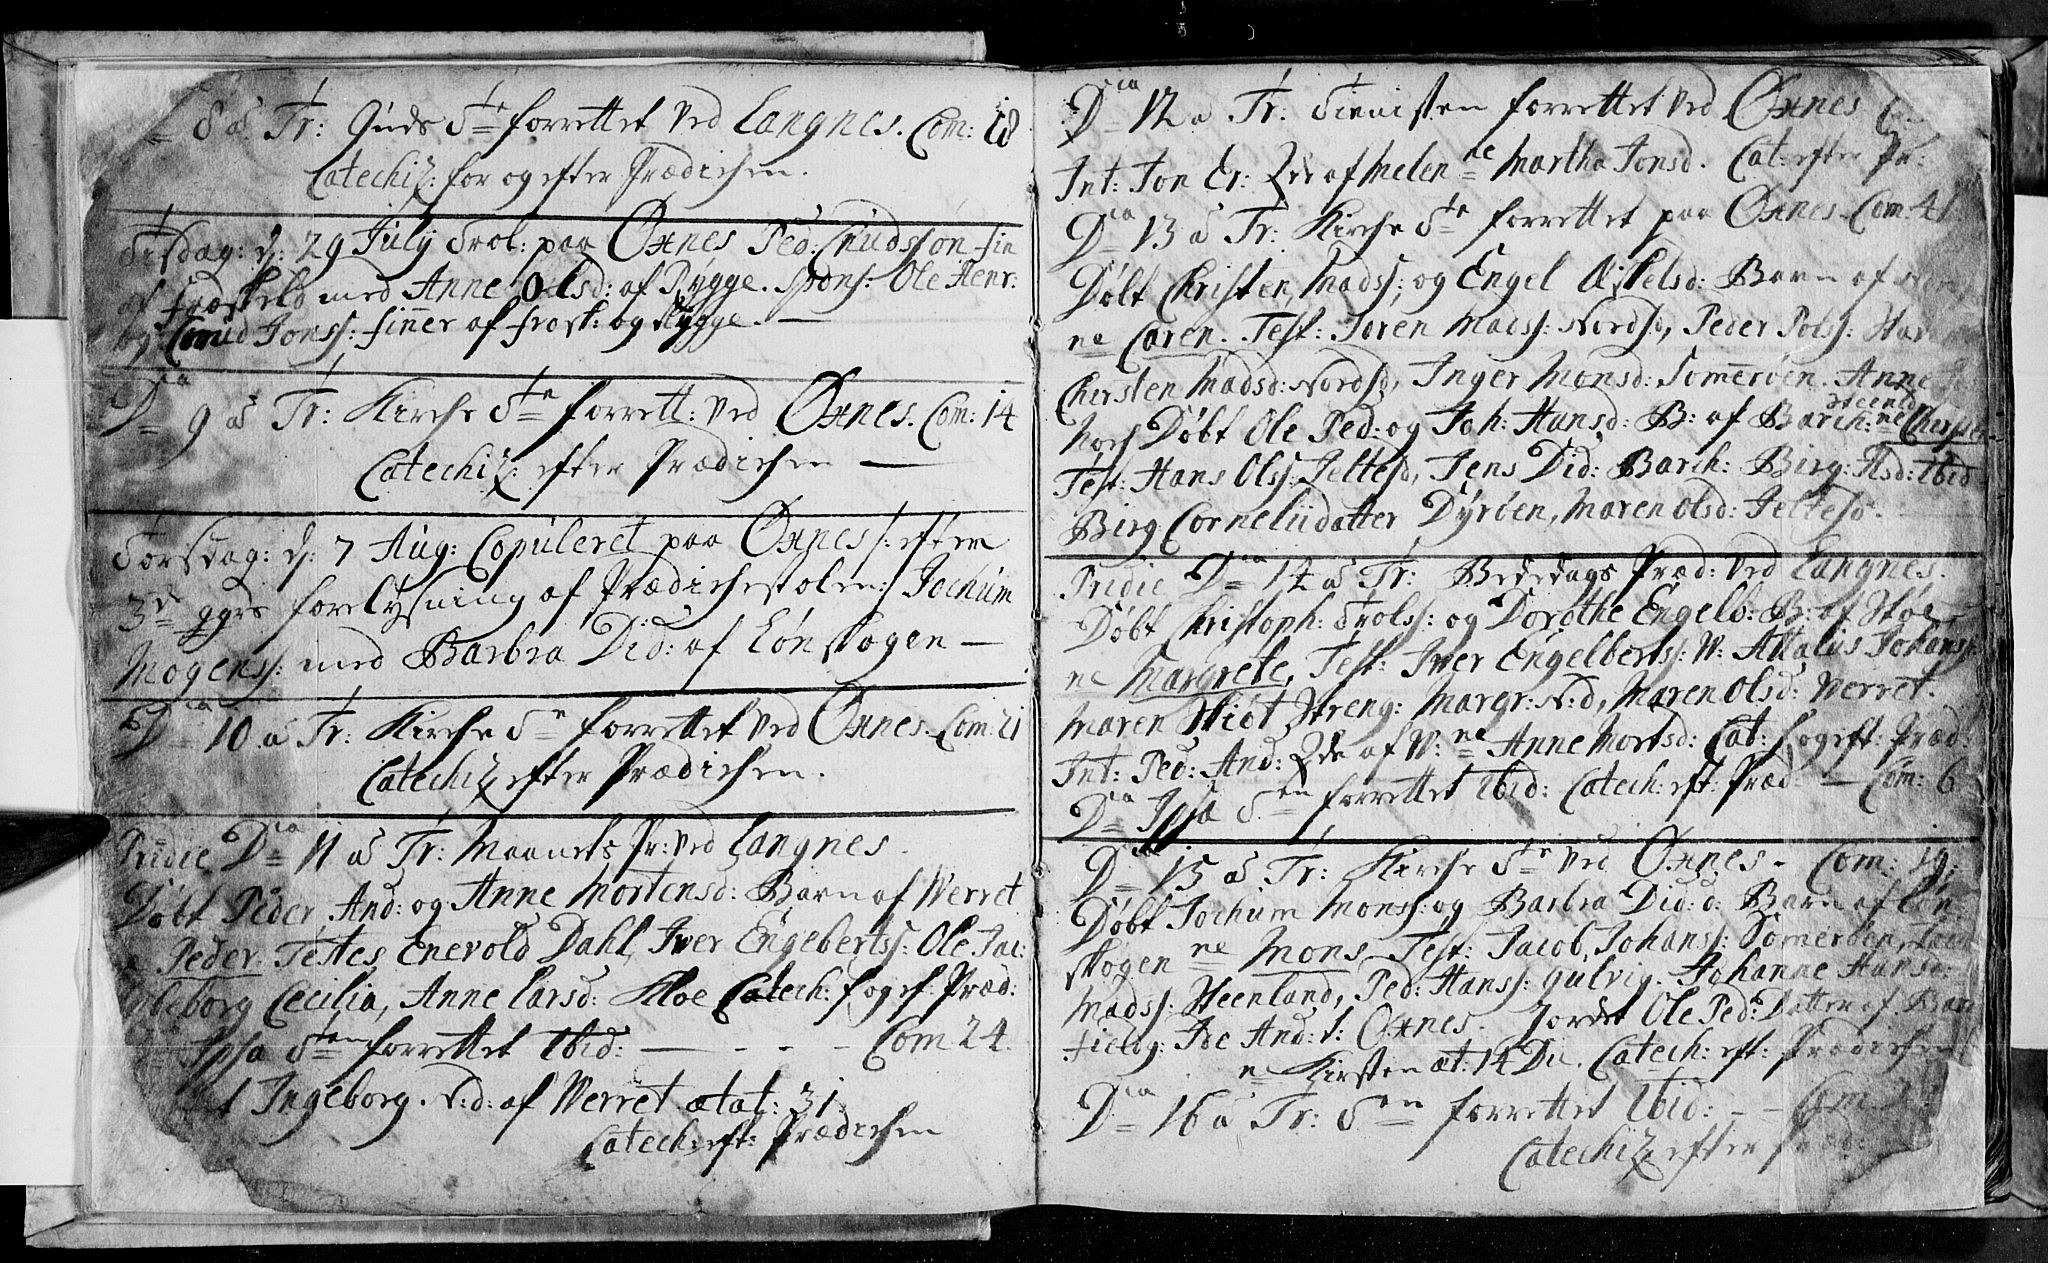 8 a Tr: Guds Ste forrettet ved Langnes. Com: 18
Catechiz: for og efter Prædichen.
Tisdag: d: 29 July Trol: paa Oxnes Ped: Cnudssøn fin
af med Anne Olsd: af Rygge. spons: Ole Henr:
og Cnud Jonss: finner af frosk: og Rygge. —
Dca 9 a Tr: Kirche Ste forrett: ved Oxnes. Com: 14
Catechiz: efter Prædichen —
Torsdag: d: 7 Aug: Copuleret paa Oxnes /: efter
3de ggrs forelysning af Prædichestolen :/ Jochum
Mogenss: med Barbra Did: af Lønskogen —
Dca 10 a Tr: Kirche Ste forrettet ved Oxnes. Com: 21
Catechiz efter Prædichen.
Pridie Dca 11 a Tr: Maanets Pr: ved Langnes.
Døbt Peder And: og Anne Mortensd: Barn af Werret
Peder. Testes Enevold Dahl, Iver Engebertss: Ole Jac:
Cecilia, Anne Larsd: Kloe Catech: f og ef: Præd:
Ipsa Sten forrettet ibid: — - - - Com 24.
Ingeborg. N: d: af Werret ætat: 31
Catech: eft: Prædichen
Dca 12 a Tr: Tienisten forrettet ved Oxnes
Int: Jon Er: Qde af Melen ne Martha Jonsd. Cat: efter Pr:
Dca 13 a Tr: Kirche Ste forrettet paa Oxnes. Com: 41
Døbt Christen Madss: og Engel Axelsd: Barn af
ne Caren. Test: Søren Madss: Nordfd, Peder Polss:
Chirsten Madsd: Nordfd, Inger Monsd: Somerøen. Anne
Noch Døbt Ole Ped: og Joh: Hansd: B: af Barch: ne Chirsten
Test: Hans Olss: Jeltefd, Jens Did: Barch: Birg: Ibid
Birg Corneliidatter Dyrøen, Maren Olsd: Jeltefd.
Pridie Dca 14 a Tr: Bededags Præd: ved Langnes.
Døbt Christoph: Trolss: og Dorothe Engelb: B: af
ne Margrete, Test: Iver Engelbertss: W: Attalus Johanss:
Maren Hiot Streng: Margr: N: d, Maren Olsd: Werret.
Int: Ped: And: Qde af W: ne Anne Mortsd: Cat: f og eft: Præd:
Dca Ipsa Sen forrettet ibid: Catech: eft: Præd: — Com: 6
Dca 15 a Tr: Kirche Ste ved Oxnes - Com: 19:
Døbt Jochum Monss: og Barbra Did: d: Barn af Løn-
skogen ne Mons. Test: Jacob Johanss: Somerøen,
Madss: Steenland, Ped: Hanss: gulvig. Johanne Hansd:
field, And: d: Oxnes. Jordet Ole Ped: Datter af
ne Kirsten æt: 14 Di. Catech: eft: Prædichen
Dca 16 a Tr: Sen forrettet ibid: - - Com
Catechiz efter Præd: